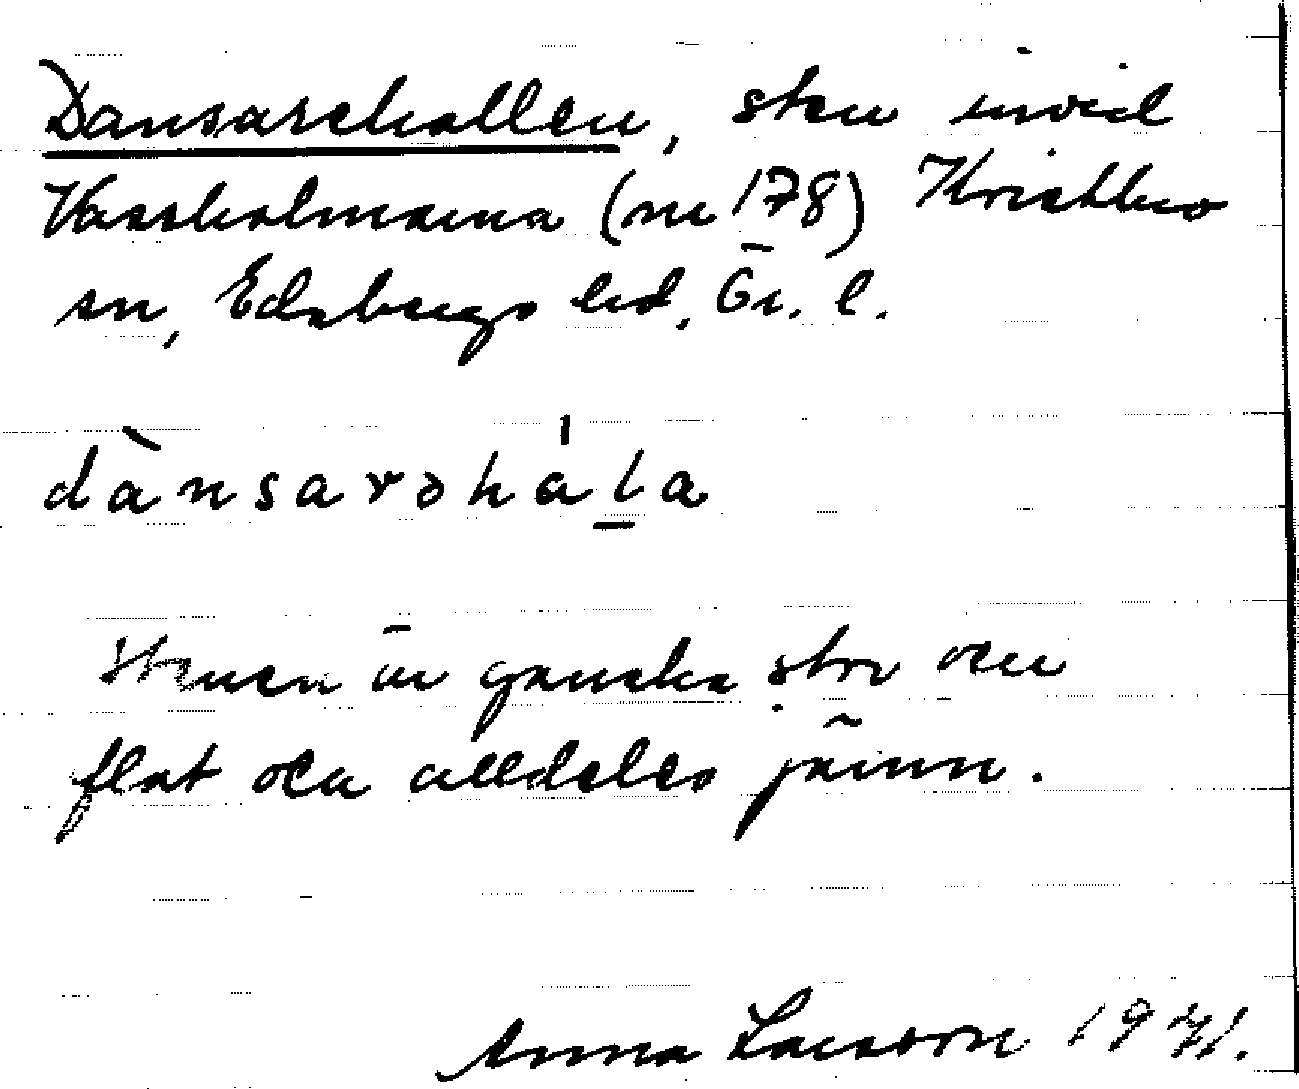 Dansarehallen, sten invid
Vassholmarna (nr 178) Knista
sn, Edsbergs hd, Ör. l.
dànsarəhál̲a
Stenen är ganska stor och
flat och alldeles jämn.
Anna Larsson 1971.